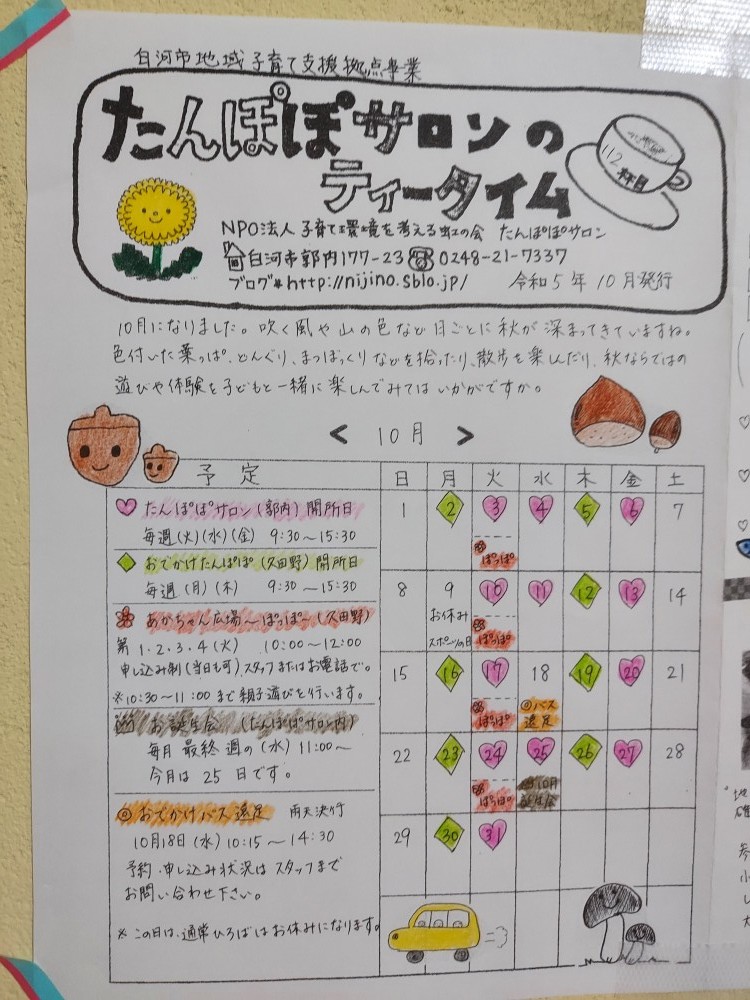 白河市地域子育て支援拠点事業
たんぽぽサロンの
ティータイム
112
杯目
NPO法人 子育て環境を考える虹の会 たんぽぽサロン
白河市郭内177-23 0248-21-7337
ブログ http://nijino.sblo.jp/ 令和5年10月発行
10月になりました。吹く風や山の色など日ごとに秋が深まってきていますね。
色付いた葉っぱ、どんぐり、まつぼっくりなどを拾ったり、散歩を楽しんだり、秋ならではの
遊びや体験を子どもと一緒に楽しんでみてはいかがですか。
< 10月 >
予定
♡ たんぽぽサロン(郭内)開所日
毎週(火)(水)(金) 9:30~15:30
◆ おでかけたんぽぽ(久田野)開所日
毎週(月)(木) 9:30~15:30
あかちゃん広場~ぽっぽ~(久田野)
第1.2.3.4(火) 10:00~12:00
申し込み制(当日も可)、スタッフまたはお電話で。
※10:30~11:00まで親子遊びを行います。
お誕生会 (たんぽぽサロン内)
毎月最終週の(水) 11:00~
今月は25日です。
◎おでかけバス遠足 雨天決行
10月18日(水) 10:15~14:30
予約・申し込み状況はスタッフまで
お問い合わせ下さい。
※この日は、通常ひろばはお休みになります。
日 月 火 水 木 金 土
1 2 3 4 5 6 7
ぽっぽ
8 9 10 11 12 13 14
お休み
スポーツの日
ぽっぽ
15 16 17 18 19 20 21
ぽっぽ
◎バス
遠足
22 23 24 25 26 27 28
ぽっぽ
10月
誕生会
29 30 31